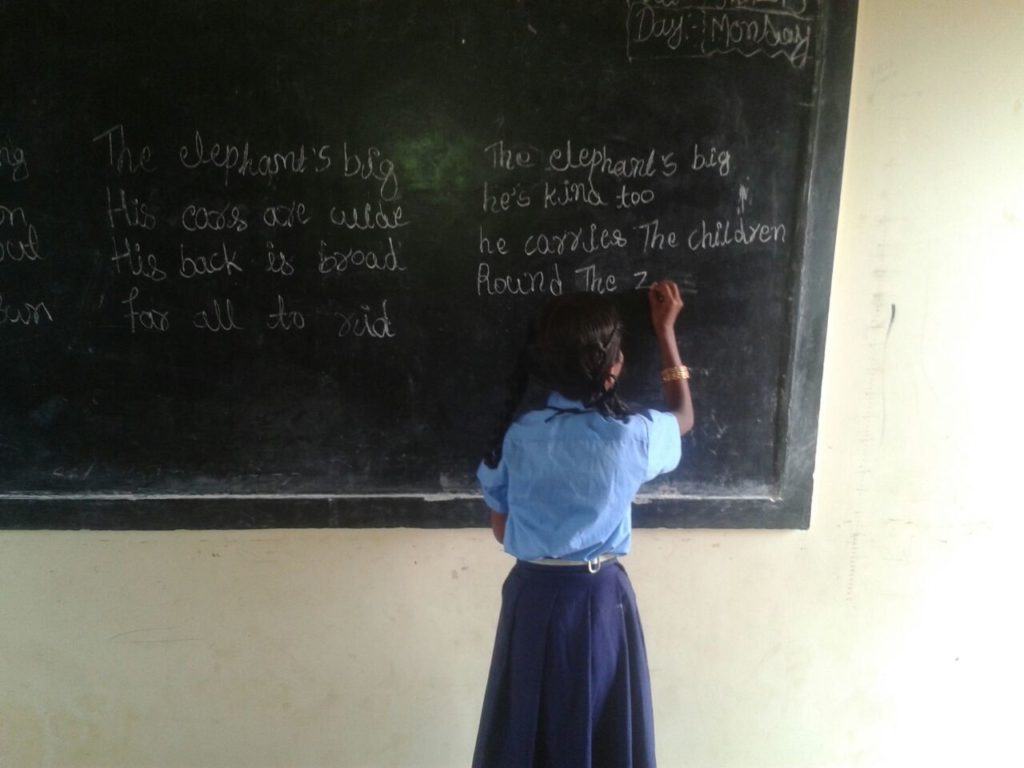 Day:- Monday
ng
The elephant's big
His ears are wide
His back is broad
For all to rid
The elephant's big
he's kind too
he carries The children
Round The z